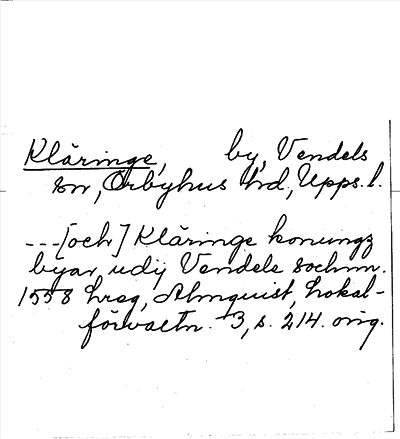 Kläringe, by, Vendels
sn, Örbyhus hd, Upps. l.
---[och] Kläringe konungz
byar, udij Vendele sochnn.
1558 hreg, Almquist, Lokal-
förvaltn. 3, s. 214. orig.